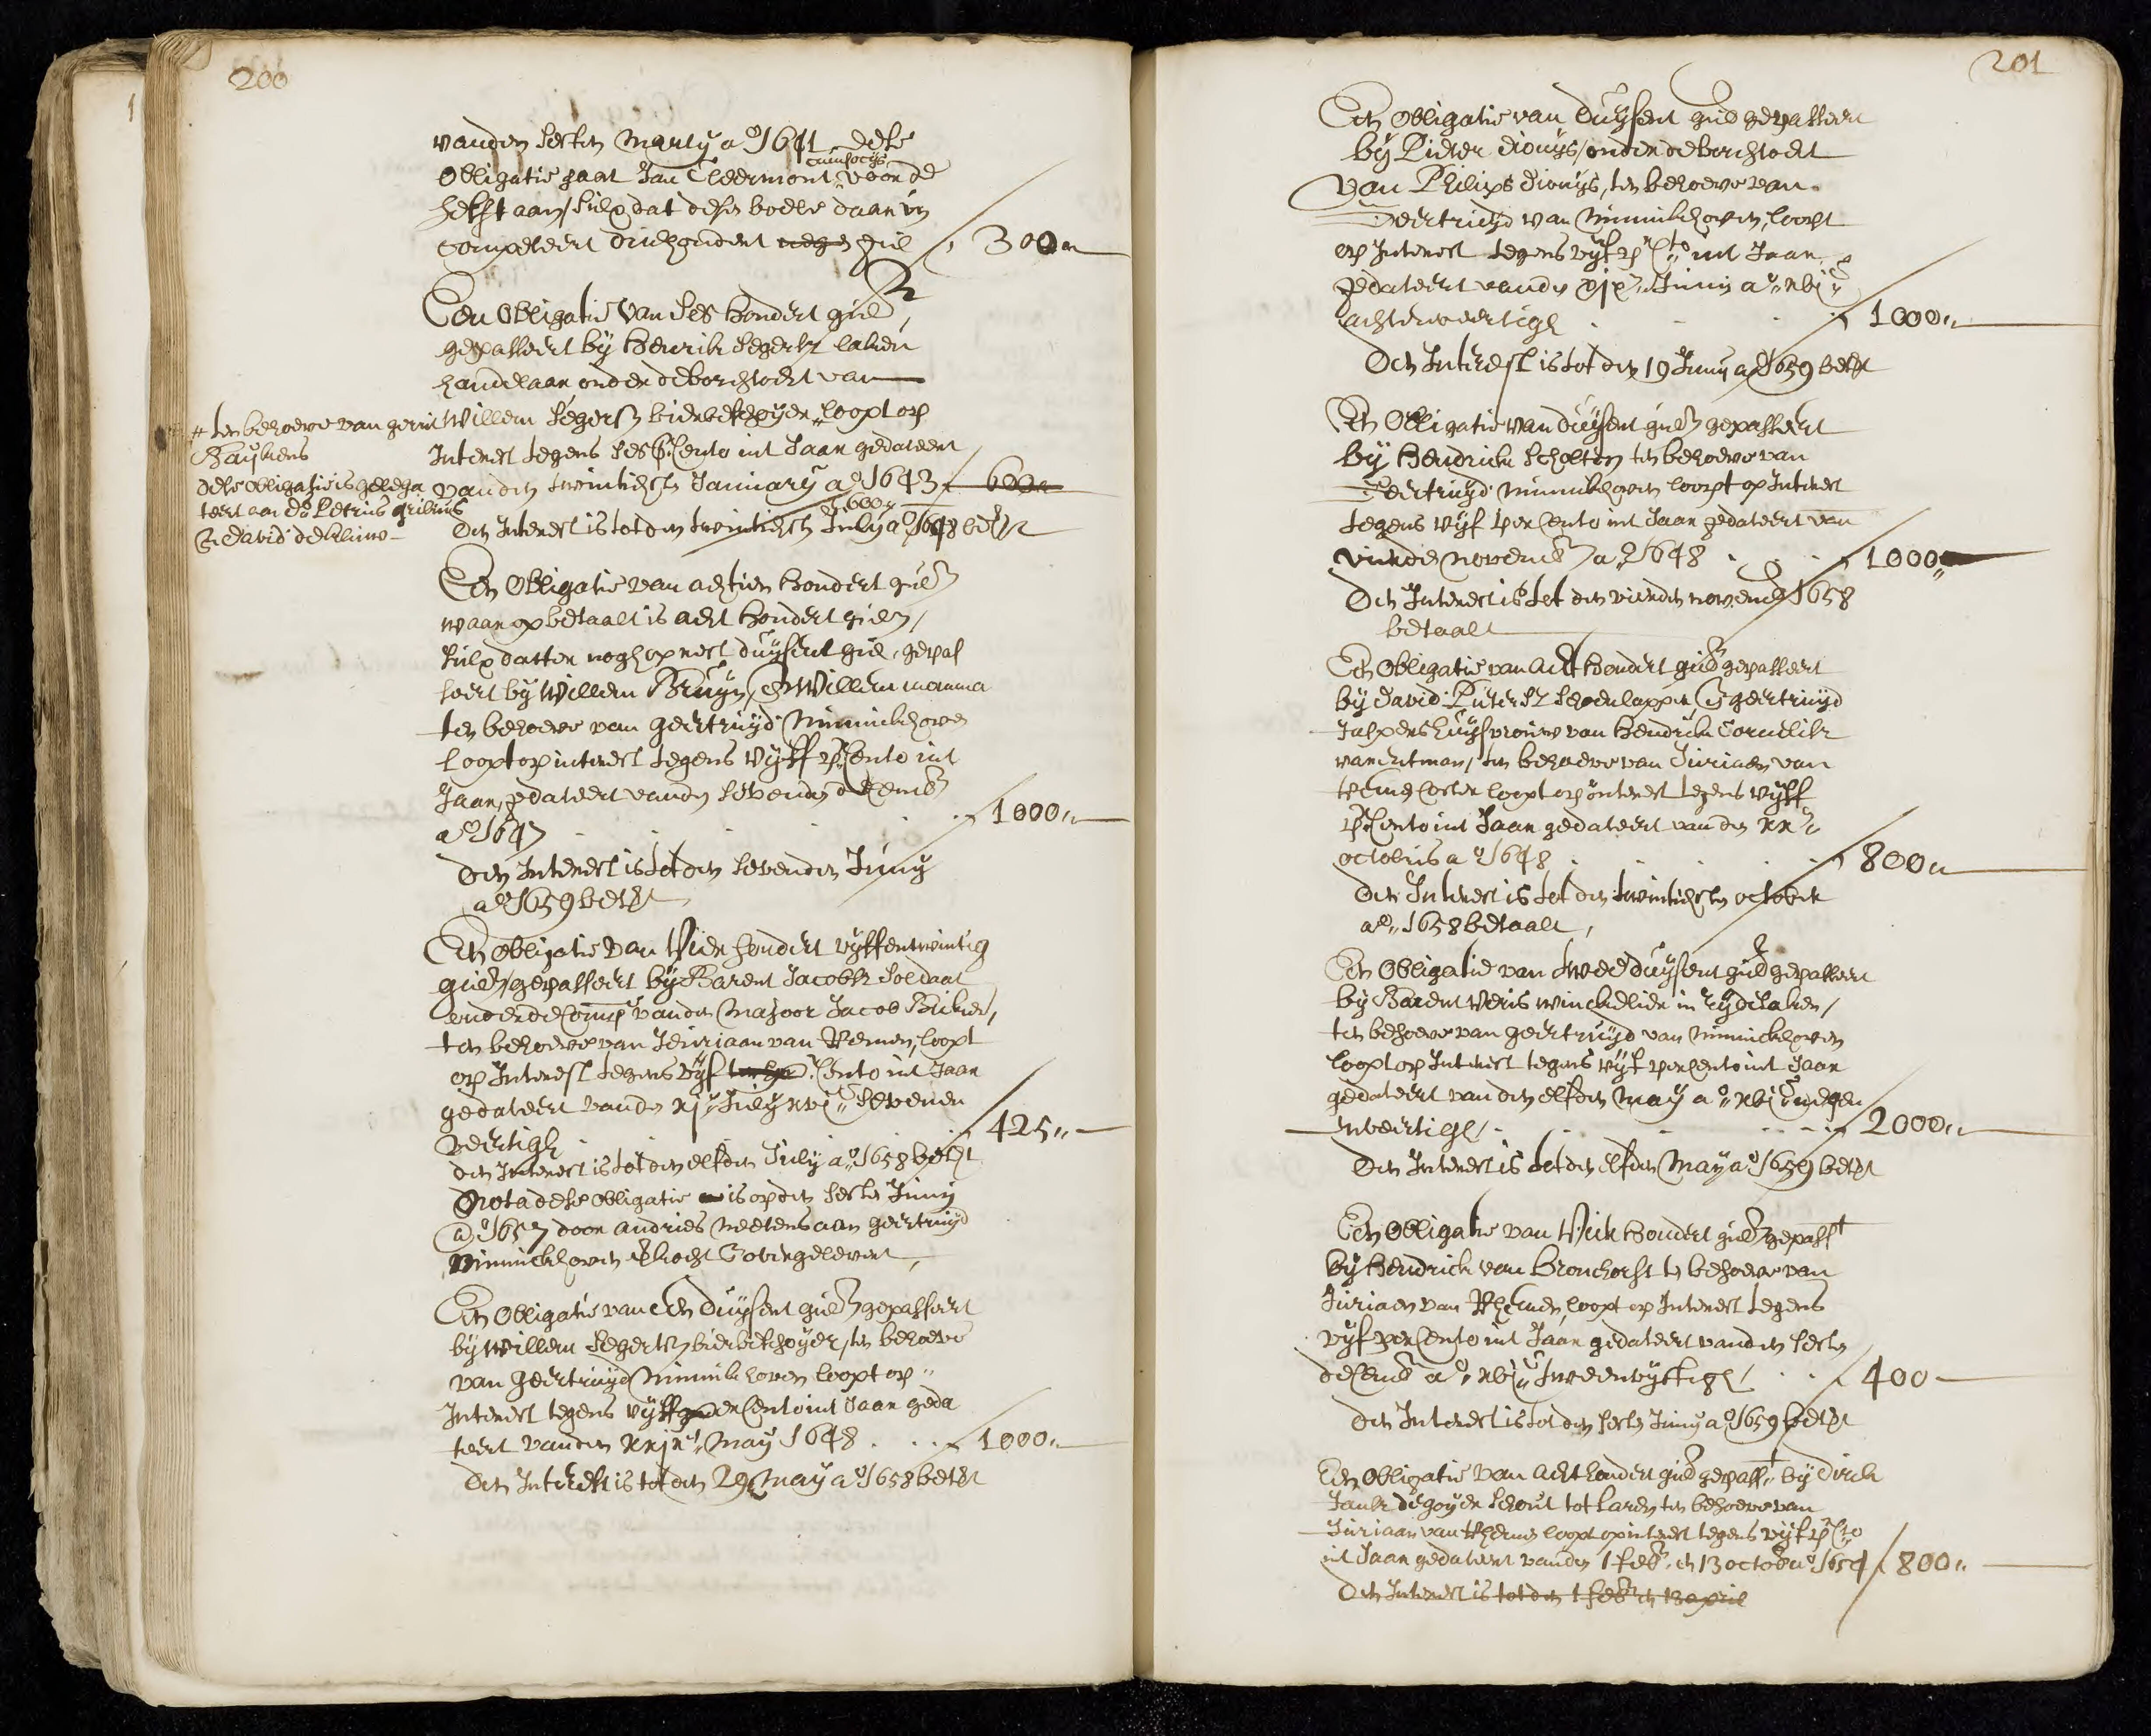 200
vanden sesten Marty ao 1641 dese
cum socijs
Obligatie gaat Jan Cleermont voor de
helft aan, sulx dat desen boele daar in
competeert driehondert negen gul 300„
Een Obligatie van ses hondert guld,
gepasseert by Henrik Segersz laken
handelaar, onder de borchtocht van
Willem Segersz bierbeschoyer, loopt op
# ten behoeve van gerrit
Baukens
dese obligatie is gelega
teert aan Do Petrus
en david de
Interest tegens ses P. Cento int Jaar gedateert
vanden twintichste January ao 1643 600„
600„
Den Interest is tot den twintichste July ao 1648 bett
Een Obligatie van achtien hondert guld
waar op betaalt is acht hondert guld,
sulx datter nogh op rest duysent gul, gepas
seert by Willem Bruyn, en Willem
ten behoeve van geertruyd Ninnickhoven
loopt op interest tegens vyff P. Cento int
Jaar, gedateert vanden sevenden decemb
ao 1647 1000„
Den Interest is tot den sevenden Juny
ao 1659 bett
Een Obligatie van Vier hondert vyffentwintig
guld, gepasseert by Barent Jacobsz Soldaat
onder de Comp vanden Majoor Jacob Bicker,
ten behoeve van Jeuriaan van Remen, loopt
op Interest tegens vyf Cento int Jaar
gedateert vanden xj July xvjC sevenen
veertigh 425„
den Interest is tot den elfden July ao 1658 bett
Nota dese obligatie is op den seste Juny
ao 1657 door andries Meetens aan geertruyd
Ninnickhoven Overgelevert,
Een Obligatie van een duysent guld gepasseert
by Willem Segertsz bierbeschoyer, ten behoeve
van geertruyd Ninnickhoven loopt op
Interest tegens vyff per Cento int Jaar geda
teert vanden xxix May 1648 1000„
Den Interest is tot den 29 May ao 1658 bett
201
Een Obligatie van duysent guld gepasseert
by Pieter Dionys, onder de borchtocht
van Philips Dionys, ten behoeve van
Geertruyd van Ninnickhoven, loopt
op Interest tegens vyf P Cto int Jaar,
gedateert vanden xix Juny ao xvjC
achtenveertigh 1000„
Den Interest is tot den 19 Juny ao 1659 bett
Een Obligatie van duysent guld gepasseert
by Hendrick Scholten ten behoeve van
Geertruyd Ninnickhoven loopt op Interest
tegens vyf per Cento int Jaar gedateert van
vierde novemb ao 1648 1000„
Den Interest is tot den vierden novemb 1658
betaalt
Een Obligatie van Acht hondert guld gepasseert
by David Pietersz Schoenlapper, en geertruyd
Jaspers huysvrouw van Hendrick Cornelisz
ten behoeve van Juriaen van
loopt op interest tegens vyff
P Cento int Jaar gedateert vanden xx
octobris ao 1648 800„
Den Interest is tot den twintichsten october
ao 1658 betaalt,
Een Obligatie van twee duysent guld gepasseert
by Barent Veris winckelier in zyde laken,
ten behoeve van geertruyd van Ninnickhoven
loopt op Interest tegens vyf per Cento int Jaar
gedateert van den elfden May ao xvjC negen
enveertigh 2000„
Den Interest is tot den elfden May ao 1659 bett
Een Obligatie van Vier hondert guld gepasst
by Hendrick van Bronchorst ten behoeve van
Juriaen van Rhemen, loopt op Interest tegens
vyf per Cento int Jaar gedateert vanden seste
decemb ao xvjC tweenvyftigh 400
Den Interest is tot den seste Juny ao 1659 bett
Een Obligatie van Acht hondert guld gepasst by Dirck
Jansz de goyer Schout tot Laren ten behoeve van
Juriaan van Rhemen loopt op interest tegens vyf P Cto
int Jaar gedateert vanden 1 feb en 13 octob ao 1654 800„
Den Interest is tot den 1 feb en 13 april